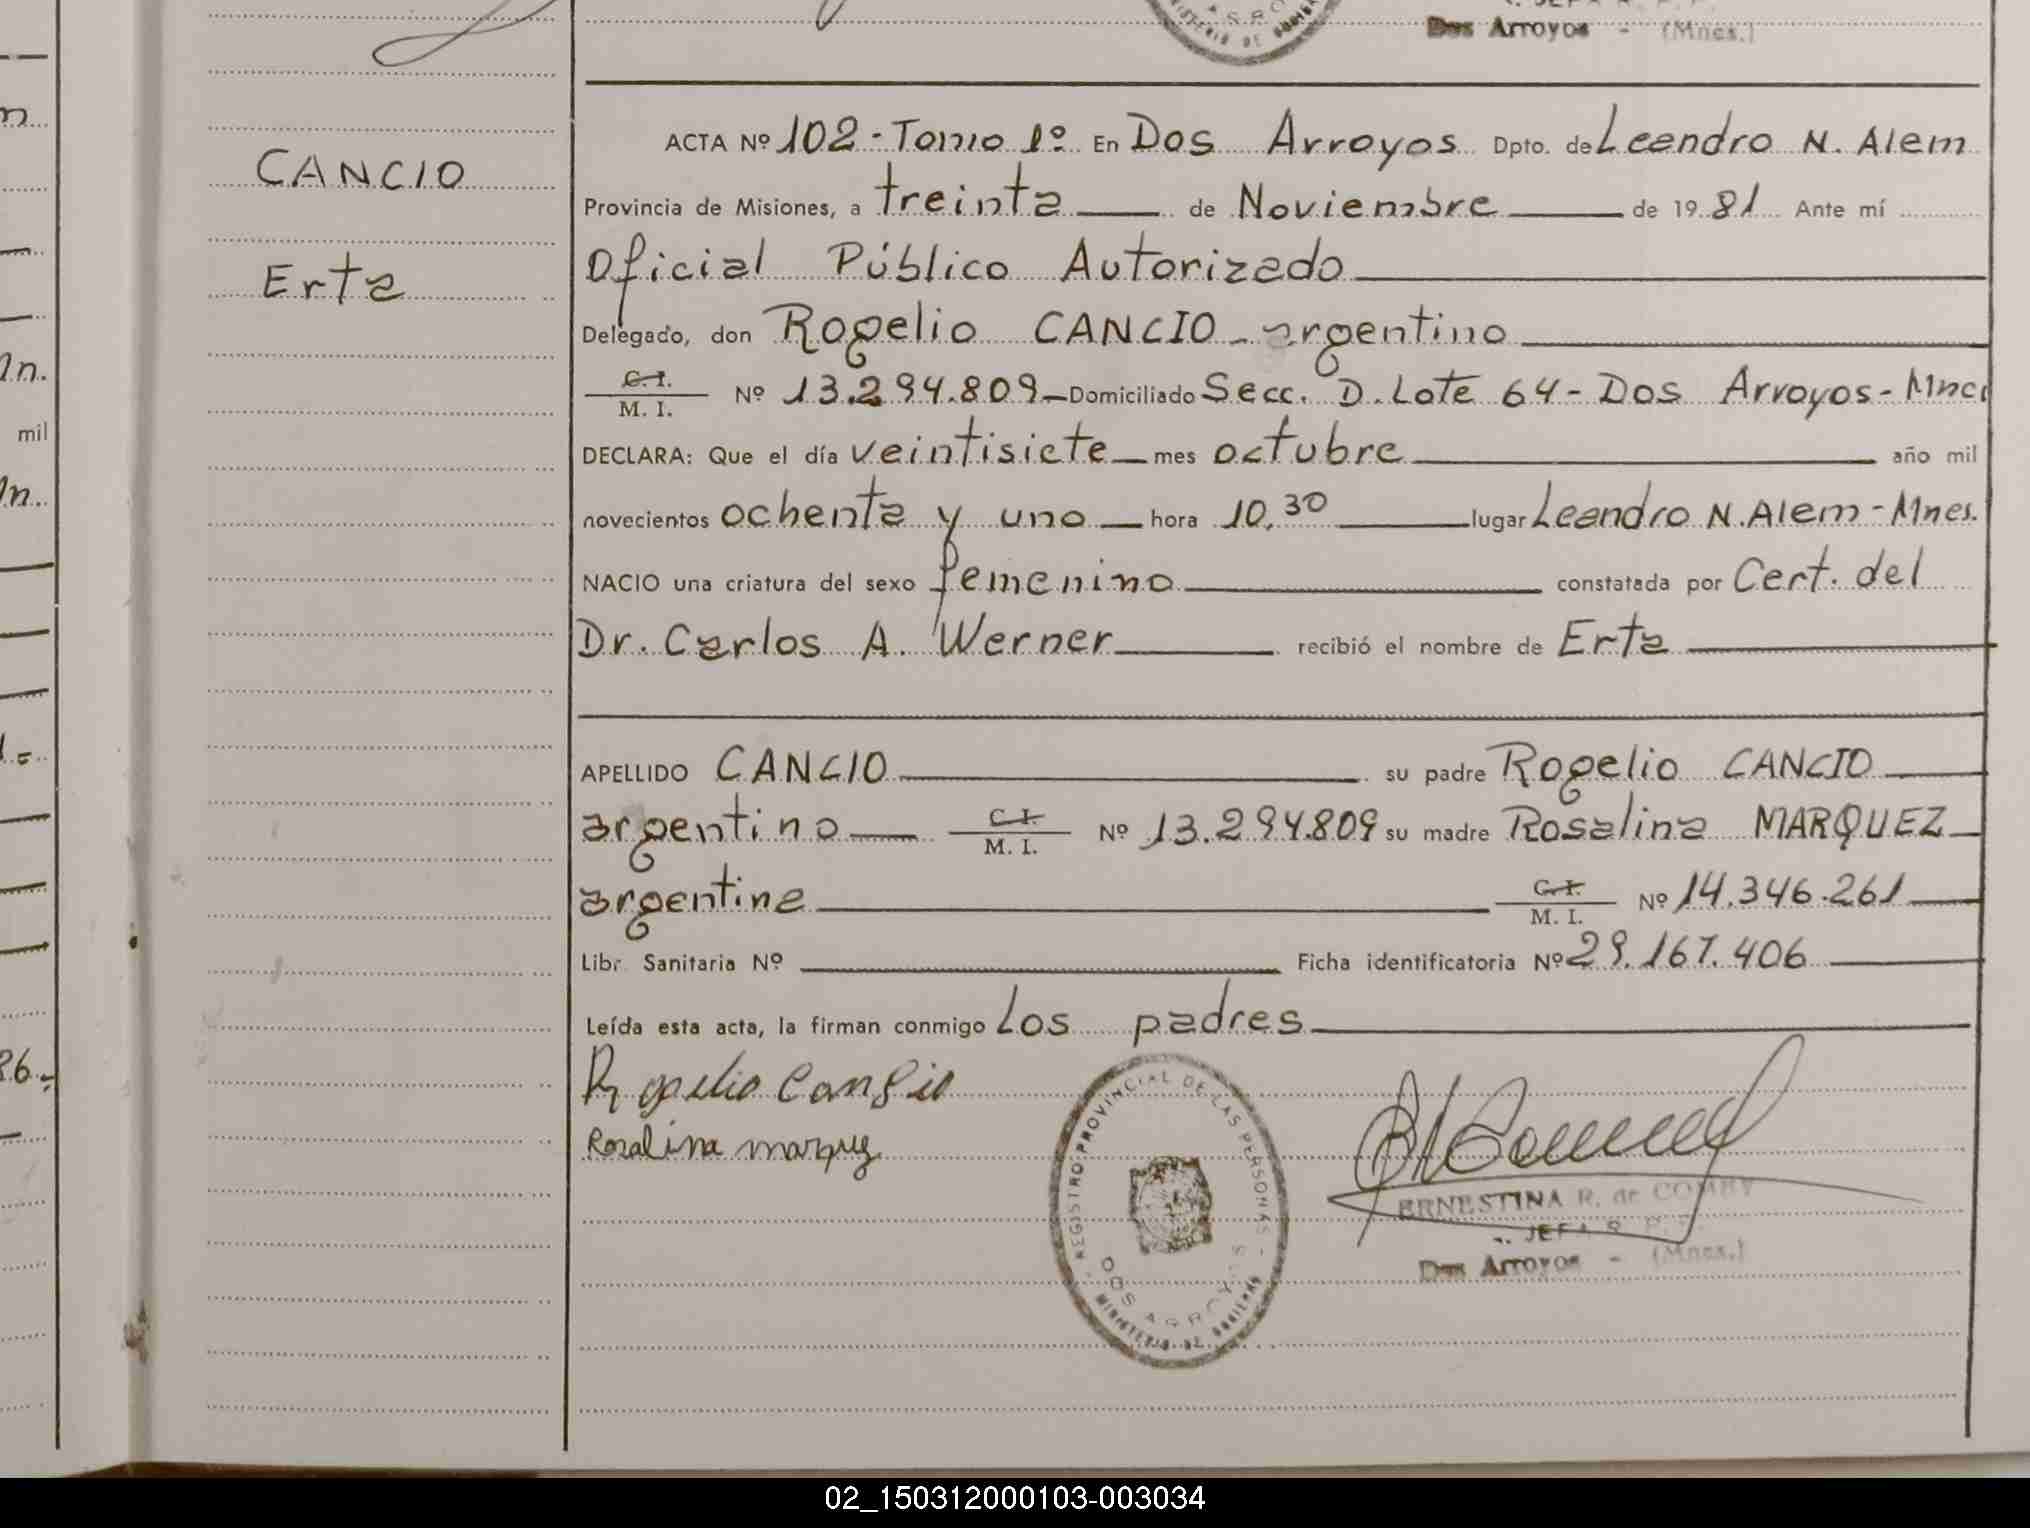 Dos Arroyos - (Mnes.)
CANCIO
Erta
ACTA Nº 102 - Tomo 1º En Dos Arroyos Dpto. de Leandro N. Alem
Provincia de Misiones, a treinta de Noviembre de 1981 Ante mí
Oficial Público Autorizado
Delegado, don Rogelio CANCIO - argentino
C.I. / M. I. Nº 13.294.809 - Domiciliado Secc. D. Lote 64 - Dos Arroyos -
DECLARA: Que el día veintisiete mes octubre año mil
novecientos ochenta y uno hora 10,30 lugar Leandro N. Alem - Mnes.
NACIO una criatura del sexo femenino constatada por Cert. del
Dr. Carlos A. Werner recibió el nombre de Erta
APELLIDO CANCIO su padre Rogelio CANCIO
argentino C.I. / M. I. Nº 13.294.809 su madre Rosalina MARQUEZ
argentina C.I. / M. I. Nº 14.346.261
Libr. Sanitaria Nº Ficha identificatoria Nº 29.167.406
Leída esta acta, la firman conmigo Los padres
Rogelio Cansio
Rosalina marquez
REGISTRO PROVINCIAL DE LAS PERSONAS -
DOS ARROYOS
MINISTERIO DE GOBIERNO
ERNESTINA R. de COMBY
JEFA R. P. P.
Dos Arroyos - (Mnes.)
mil
02_150312000103-003034